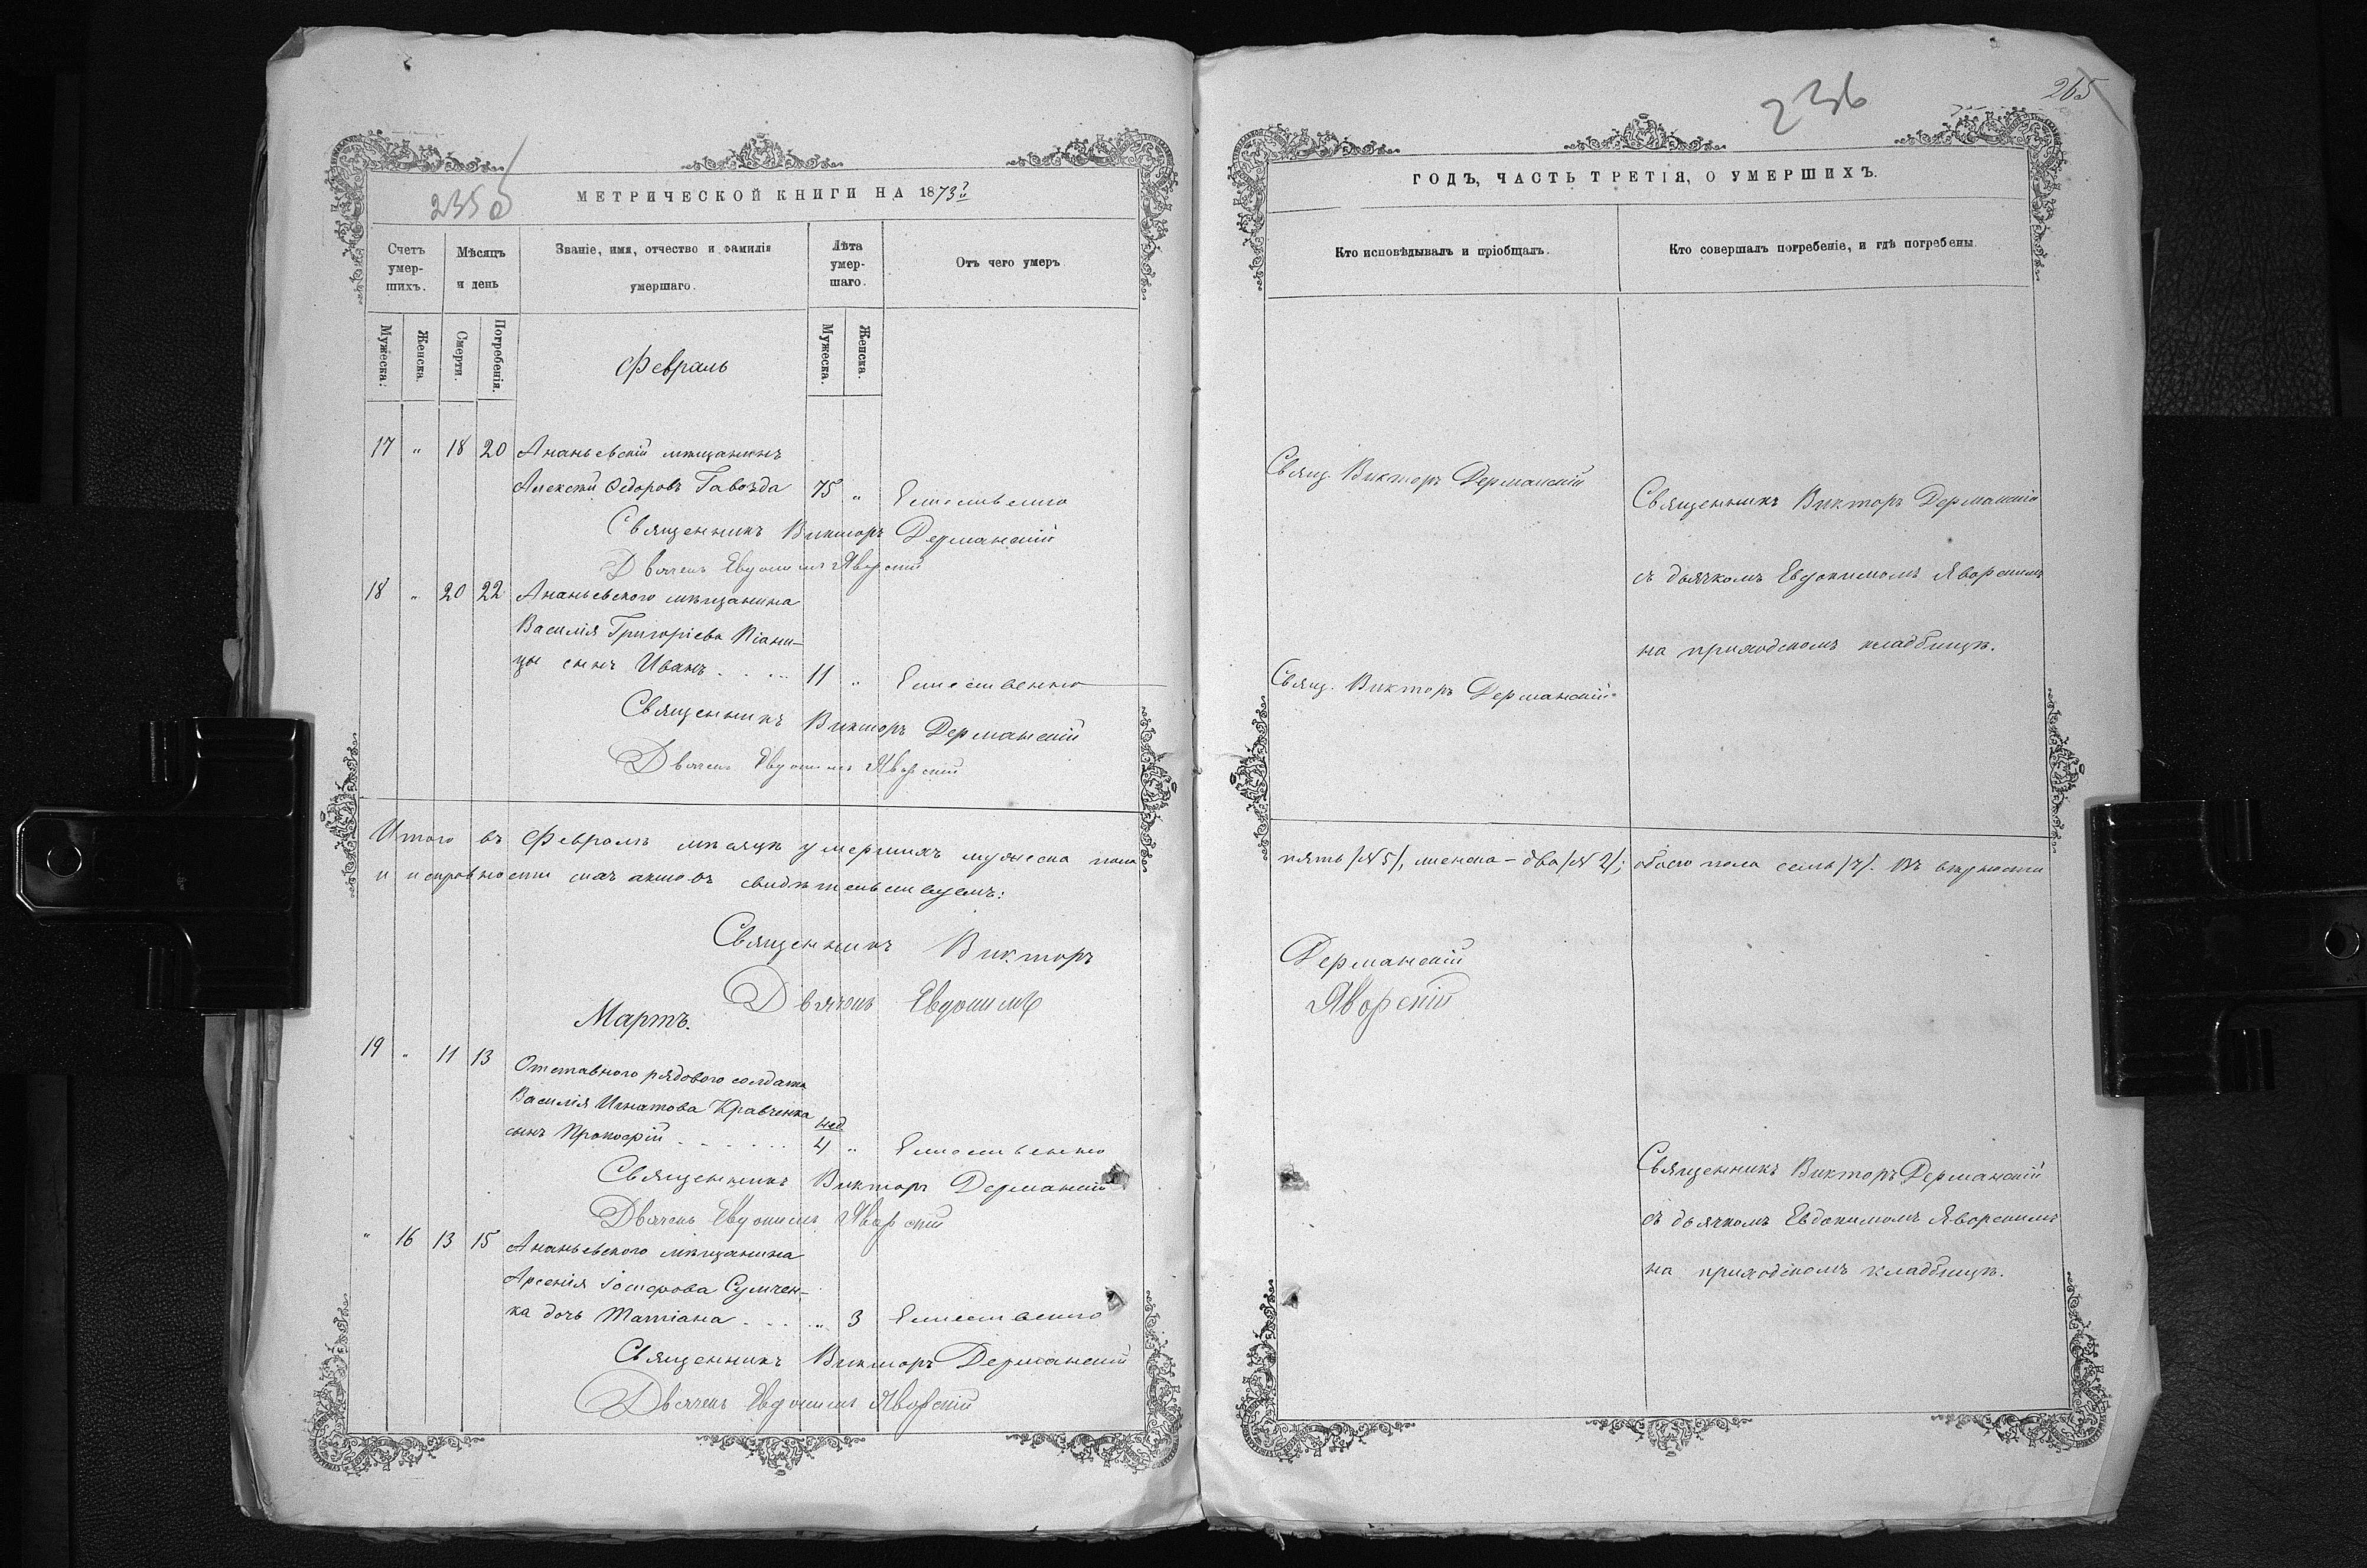 235
МЕТРИЧЕСКОЙ КНИГИ НА 1873
Счетъ умер-шихъ.
Мѣсяцъ и день
Званіе, имя, отчество и фамилія умершаго.
Лѣта умер-шаго.
Отъ чего умеръ
Мужеска.
Женска.
Смерти.
Погребенія.
Мужеска.
Женска.
Февраль
17 " 18 20 Ананьевскій мѣщанинъ
Алексѣй Ѳедоровъ Гавозда 75 " Естественно
Священникъ Викторъ Дерманскій
Дьячекъ Евдокимъ Яворскій
18 " 20 22 Ананьевского мѣщанина
Василія Григоріева Піани-
цы сынъ Иванъ 11 " Естественно
Священникъ Викторъ Дерманскій
Дьячекъ Евдокимъ Яворскій
Итого въ Февралѣ мѣсяцѣ умершихъ мужеска пола
и исправности сихъ актовъ свидѣтельствуемъ:
Священникъ Викторъ
Дьячекъ Евдокимъ
Мартъ.
19 " 11 13 Отставного рядового солдата
Василія Игнатова Кравченка
сынъ Прокофій нед. 4 " Естественно
Священникъ Викторъ Дерманскій
Дьячекъ Евдокимъ Яворскій
" 16 13 15 Ананьевского мѣщанина
Арсенія Іосифова Сумчен-
ка дочь Татіана " 3 Естественно
Священникъ Викторъ Дерманскій
Дьячекъ Евдокимъ Яворскій
236
265
ГОДЪ, ЧАСТЬ ТРЕТІЯ, О УМЕРШИХЪ.
Кто исповѣдывалъ и пріобщалъ.
Кто совершалъ погребеніе, и гдѣ погребены.
Свящ. Викторъ Дерманскій
Священникъ Викторъ Дерманскій
съ дьячкомъ Евдокимомъ Яворскимъ
на приходскомъ кладбищѣ.
Свящ. Викторъ Дерманскій
пять /№ 5/, женска - два /№ 2/; обоего пола семь /7/. Въ вѣрности
Дерманскій
Яворскій
Священникъ Викторъ Дерманскій
съ дьячкомъ Евдокимомъ Яворскимъ
на приходскомъ кладбищѣ.